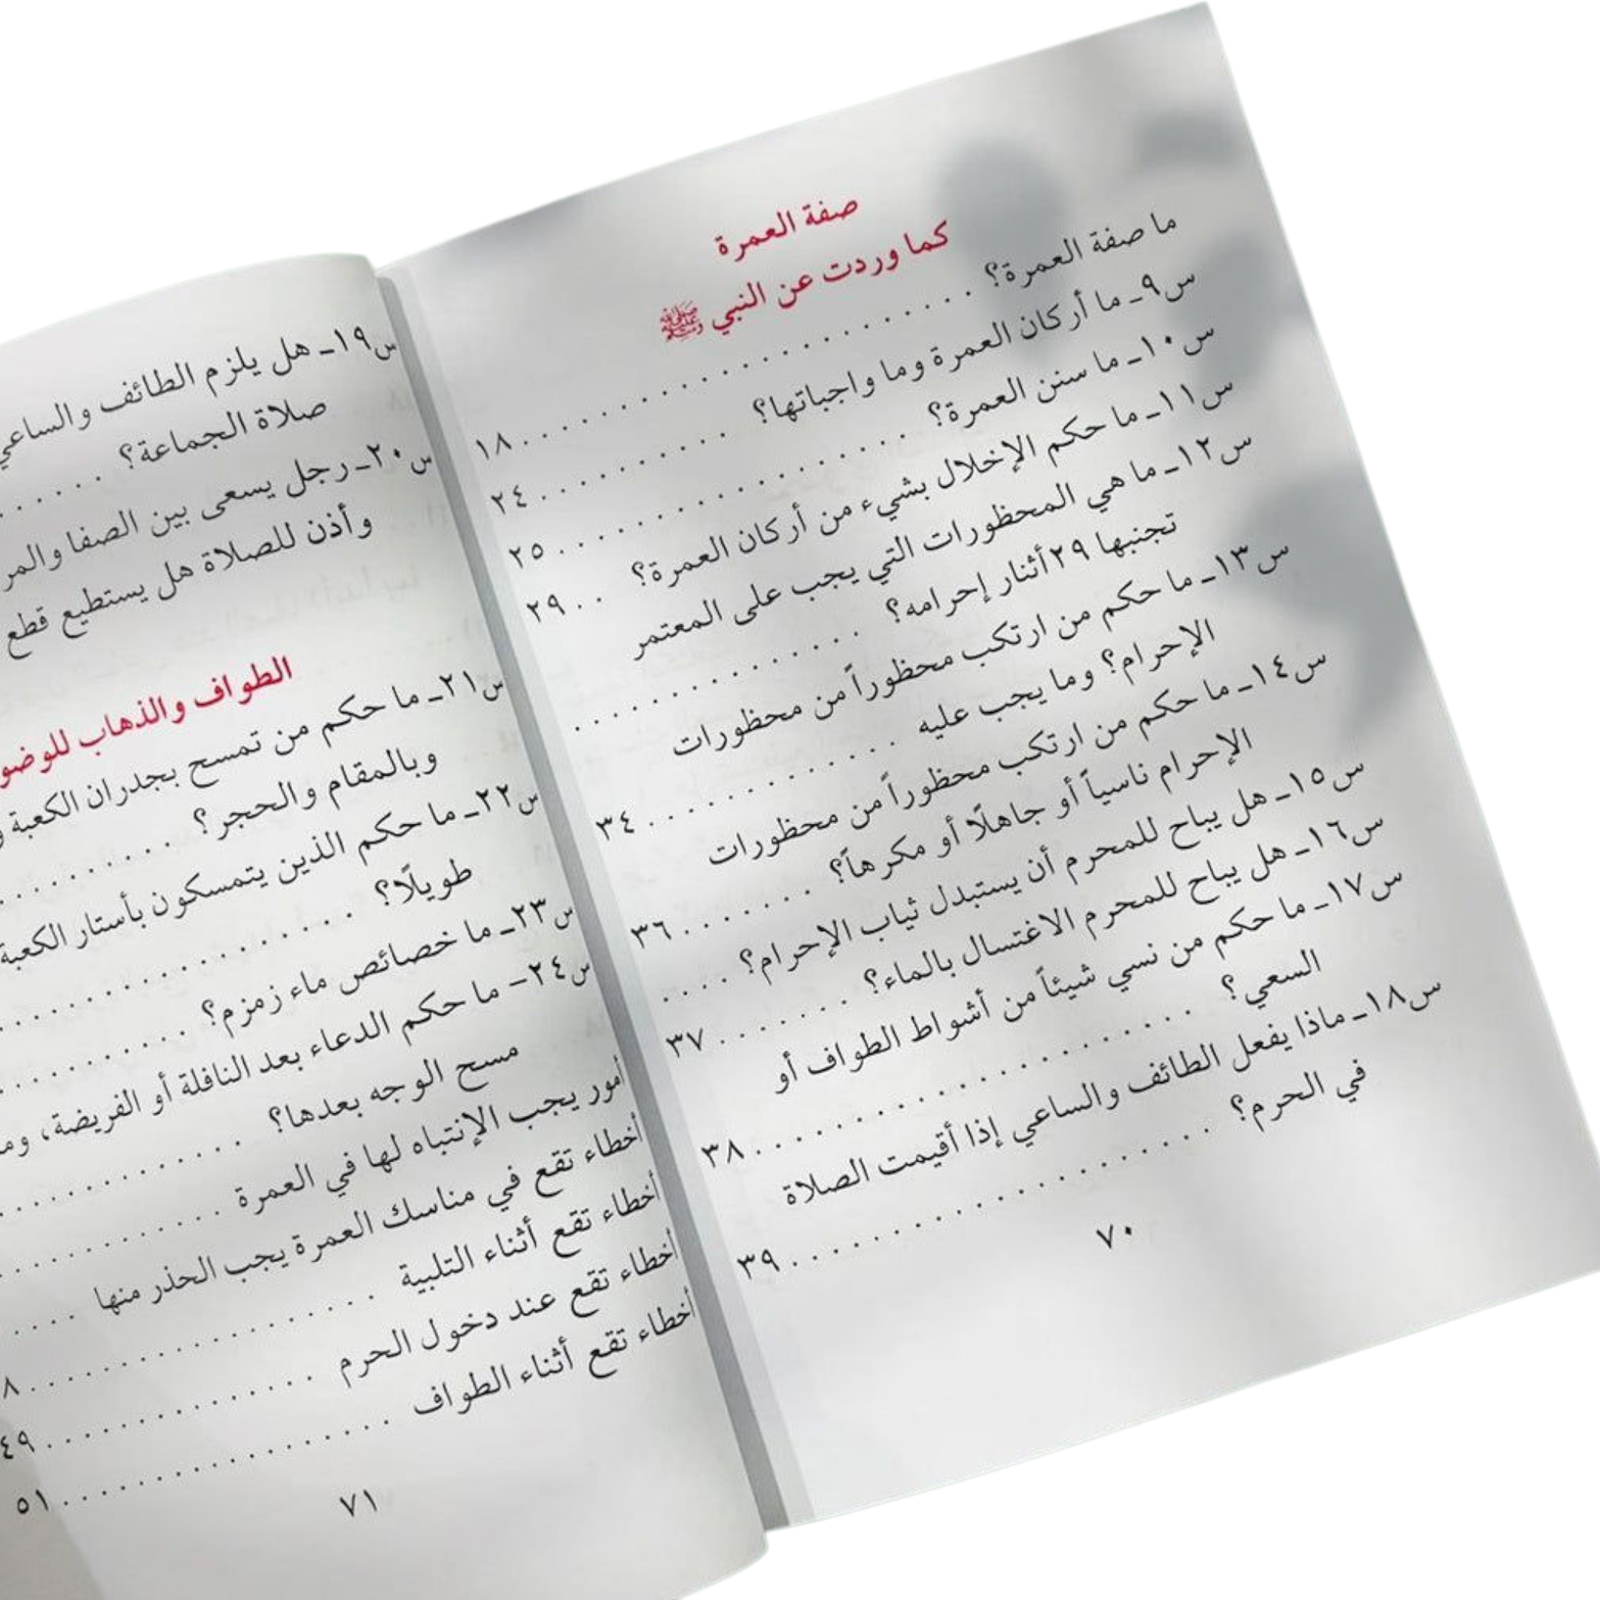 صفة العمرة
كما وردت عن النبي ﷺ
ما صفة العمرة؟ . . . . . . . . . . . . . . . . . . . . ١٨
س٩ـ ما أركان العمرة وما واجباتها؟ . . . . . . . . . . ٢٤
س١٠ـ ما سنن العمرة؟ . . . . . . . . . . . . . . . . . . ٢٥
س١١ـ ما حكم الإخلال بشيء من أركان العمرة؟ . . ٢٩
س١٢ـ ما هي المحظورات التي يجب على المعتمر
تجنبها ٢٩ أثنار إحرامه؟ . . . . . . . . . . . . . . .
س١٣ـ ما حكم من ارتكب محظوراً من محظورات
الإحرام؟ وما يجب عليه . . . . . . . . . . . . . ٣٤
س١٤ـ ما حكم من ارتكب محظوراً من محظورات
الإحرام ناسياً أو جاهلًا أو مكرهاً؟ . . . . . . . ٣٦
س١٥ـ هل يباح للمحرم أن يستبدل ثياب الإحرام؟ . . . .
س١٦ـ هل يباح للمحرم الاغتسال بالماء؟ . . . . . . . ٣٧
س١٧ـ ما حكم من نسي شيئاً من أشواط الطواف أو
السعي؟ . . . . . . . . . . . . . . . . . . . . . . ٣٨
س١٨ـ ماذا يفعل الطائف والساعي إذا أقيمت الصلاة
في الحرم؟ . . . . . . . . . . . . . . . . . . . . ٣٩
٧٠
س١٩ـ هل يلزم الطائف والساعي
صلاة الجماعة؟ . . . . . .
س٢٠ـ رجل يسعى بين الصفا والمر
وأذن للصلاة هل يستطيع قطع
الطواف والذهاب للوضو
س٢١ـ ما حكم من تمسح بجدران الكعبة و
وبالمقام والحجر؟ . . . . . . . . . .
س٢٢ـ ما حكم الذين يتمسكون بأستار الكعبة
طويلًا؟ . . . . . . . . . . . . . . . . .
س٢٣ـ ما خصائص ماء زمزم؟ . . . . . . . . . .
س٢٤ـ ما حكم الدعاء بعد النافلة أو الفريضة، وم
مسح الوجه بعدها؟ . . . . . . . . . . . .
أمور يجب الإنتباه لها في العمرة . . . . . . . . . . . .
أخطاء تقع في مناسك العمرة يجب الحذر منها . . . .
أخطاء تقع أثناء التلبية . . . . . . . . . . . . . . . . . ٨
أخطاء تقع عند دخول الحرم . . . . . . . . . . . . . . ٤٩
أخطاء تقع أثناء الطواف . . . . . . . . . . . . . . . . ٥١
٧١